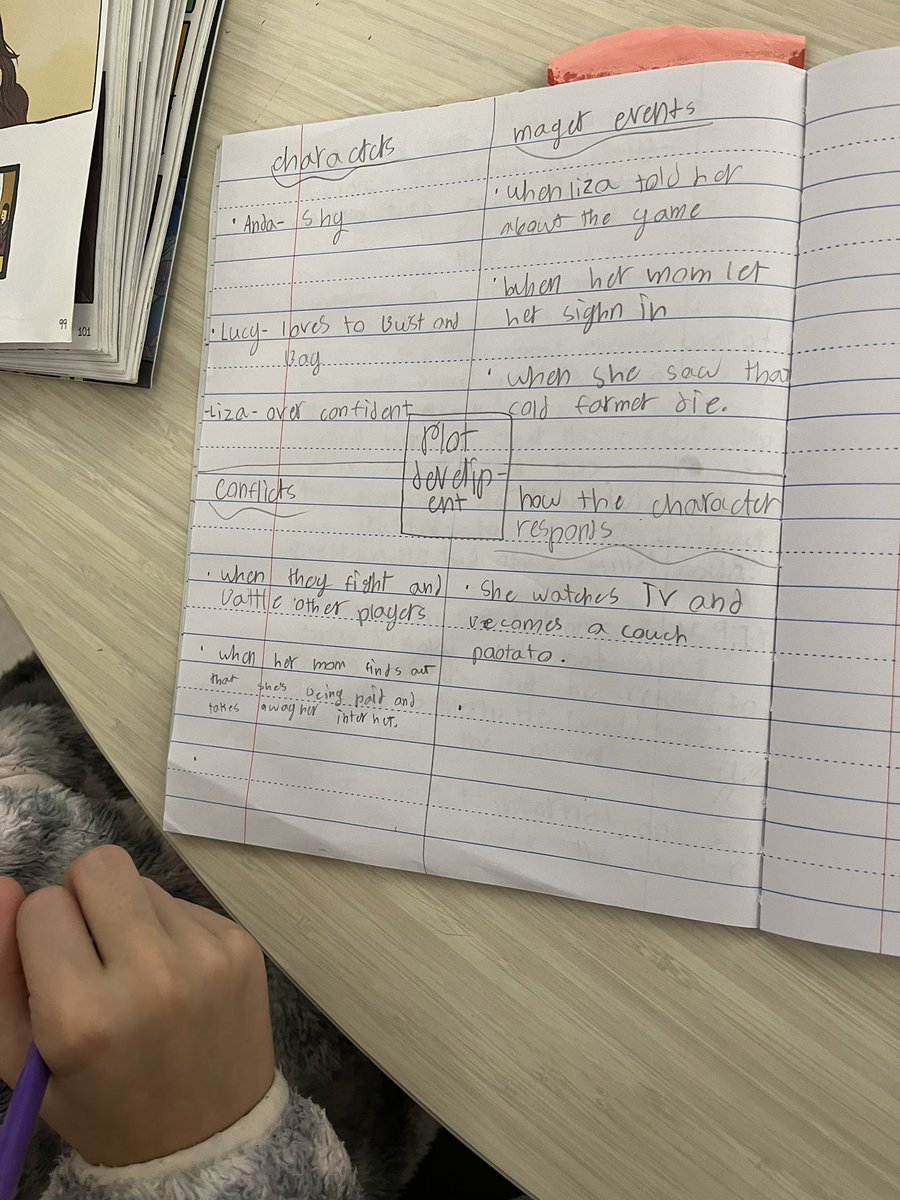 99
101
characters
Anda- shy
Lucy- loves to Bust and
Bag
-Liza- over confident
mager events
when liza told her
about the game
when her mom let
her sighn in
when she saw that
cold farmer die.
Plot
develip-
ent
conflicts
when they fight and
battle other players
when her mom finds out
that she's being paid and
takes away her internet.
how the character
responds
She watches TV and
becomes a couch
paotato.